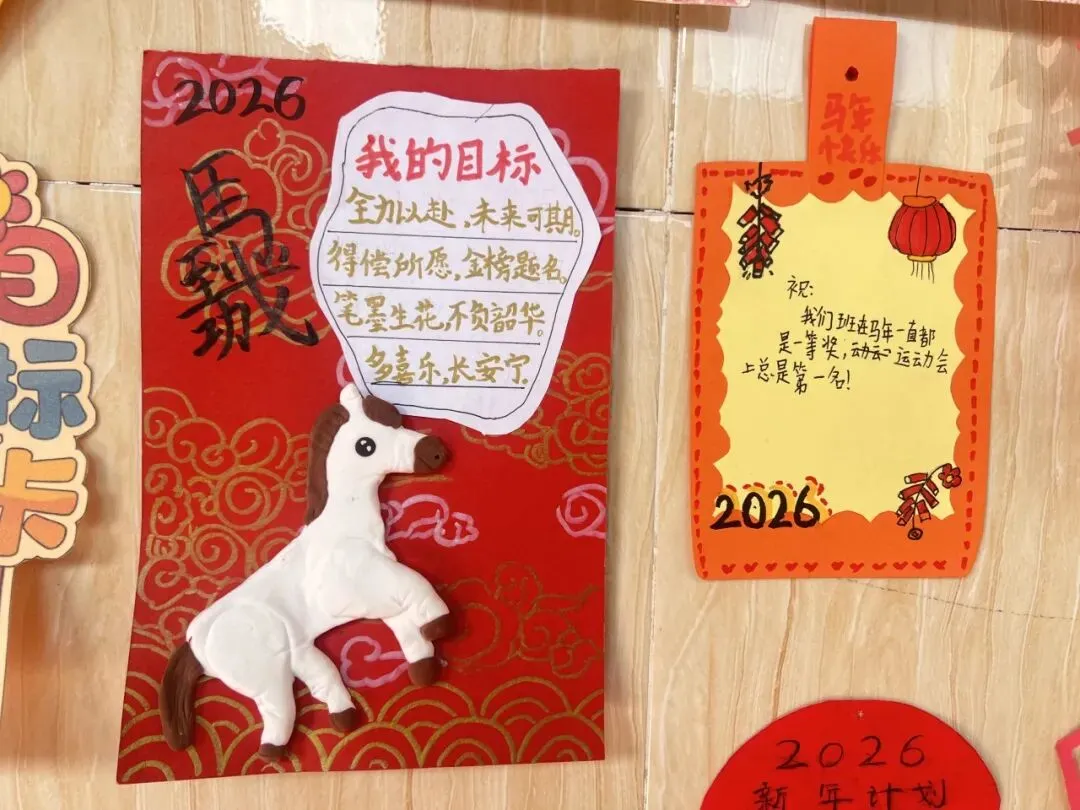 目
标
卡
2026
馬
我的目标
全力以赴,未来可期。
得偿所愿,金榜题名。
笔墨生花,不负韶华。
多喜乐,长安宁.
马年
快乐
祝:
我们班在马年一直都
是一等奖,运动会
上总是第一名!
2026
2026
新年计划